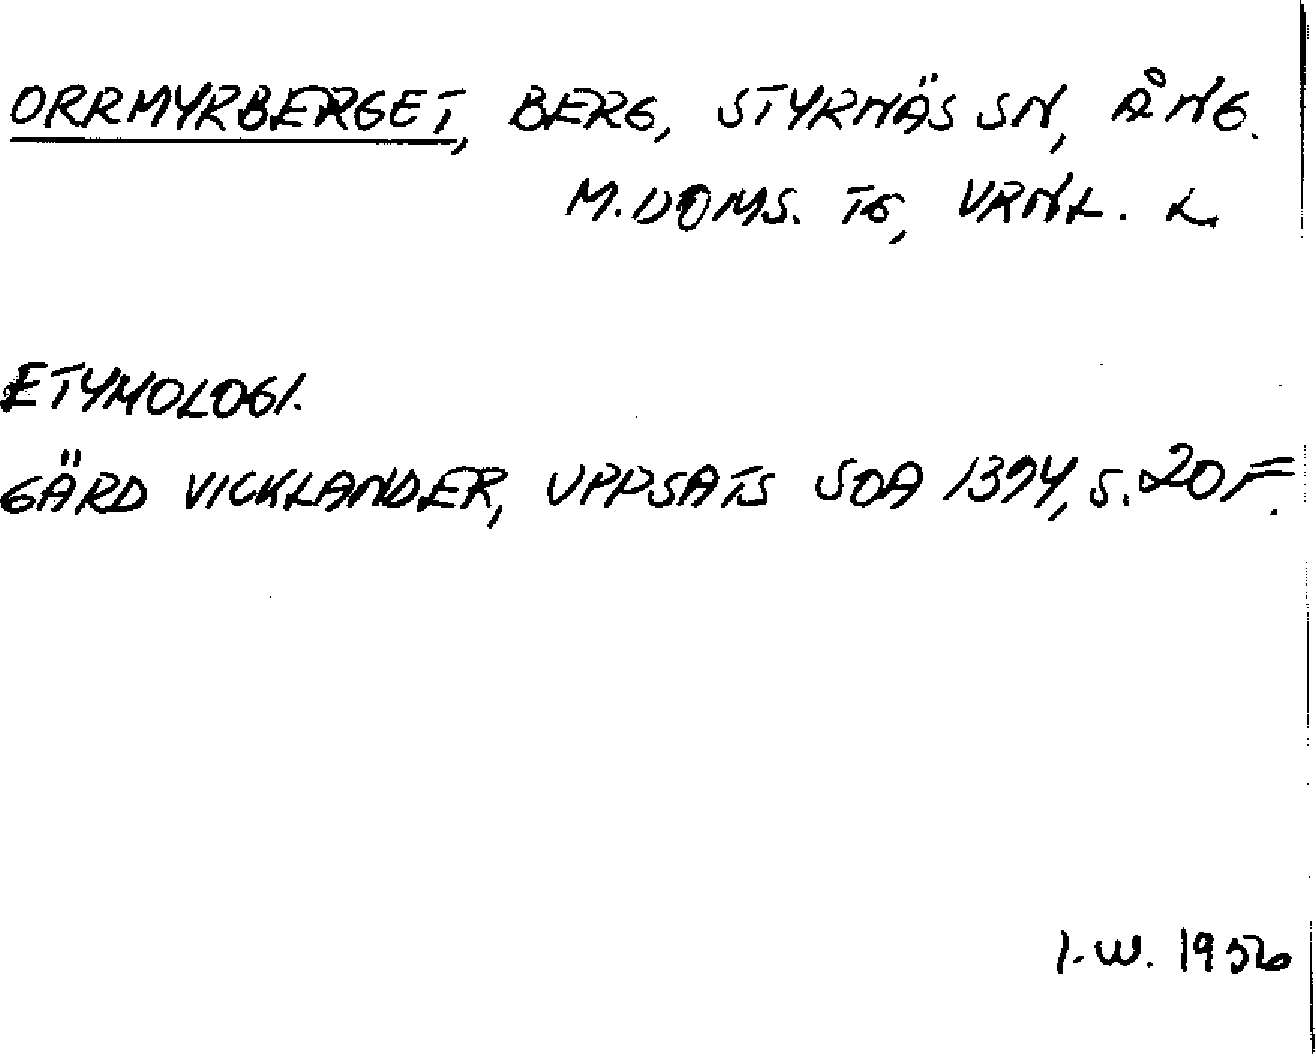 ORRMYRBERGET, BERG, STYRNÄS SN, ÅNG.
M. DOMS. TG, VRNL. L.
ETYMOLOGI.
GÄRD VICKLANDER, UPPSATS SOA 1394, S. 20 F.
I.W. 1956